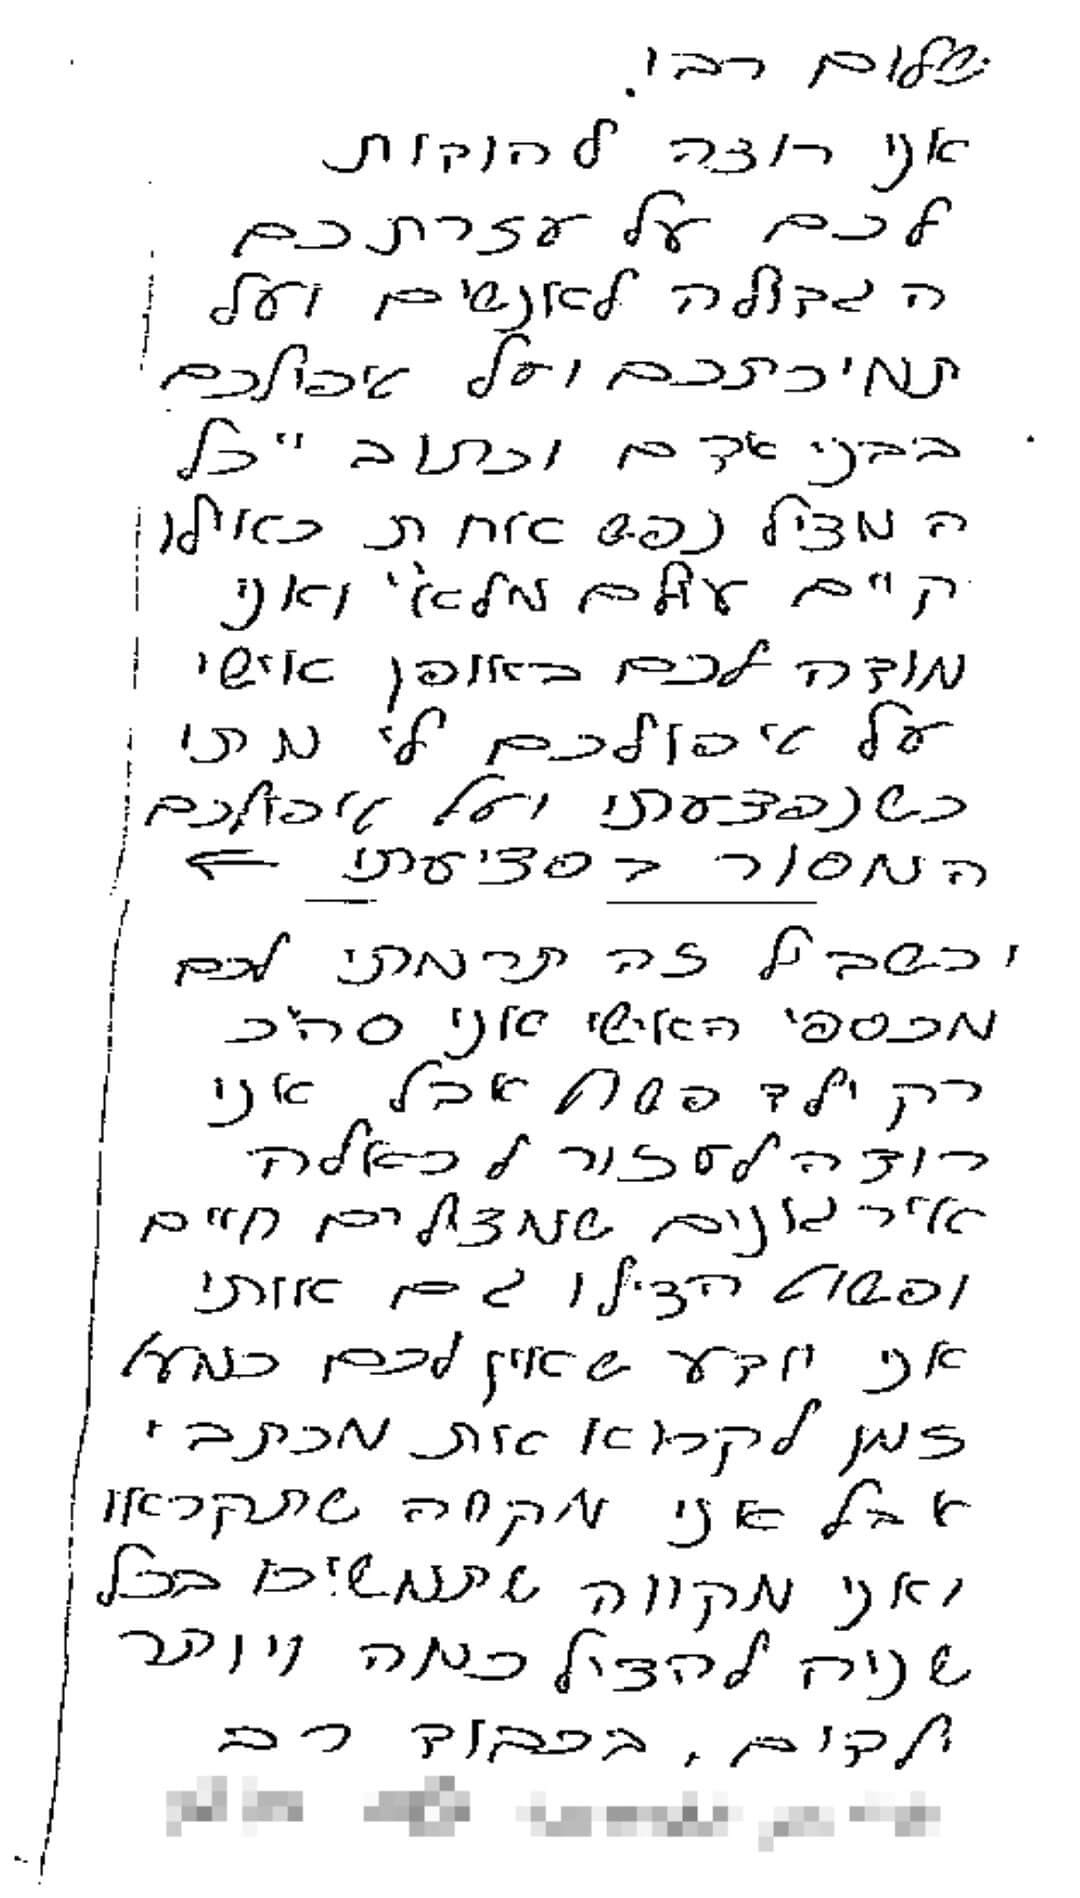 שלום רבי.
אני רוצה להוקות
לכם על עזרתכם
הגדולה לאנשים ועל
תמיכתכם ועל טיפולכם
בבני אדם וכתוב "כל
המציל נפש אחת כאילו
קיים עולם מלא" ואני
מודה לכם באופן אישי
על טיפולכם לי מתי
כשנפצעתי ועל טיפולכם
המסור בפציעתי ←
ובשביל זה תרמתי לכם
מכספי האישי אני סה"כ
רק ילד פשוט אבל אני
רוצה לעזור לכאלה
אירגונים שמצילים חיים
ופשוט הצילו גם אותי
אני יודע שאין לכם כמעט
זמן לקרוא את מכתבי
אבל אני מקווה שתקראו
ואני מקווה שתמשיכו בכל
שניה להציל כמה ויותר
ילדים, בכבוד רב